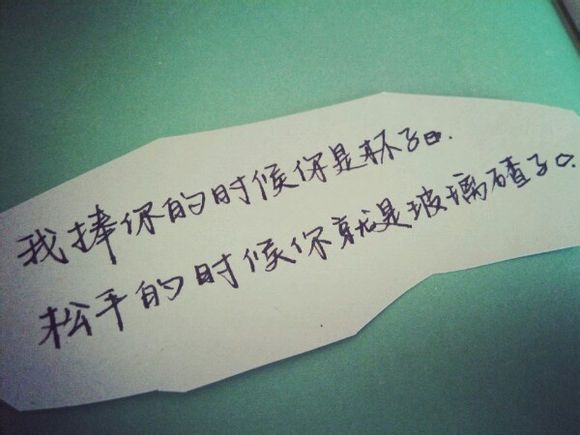 我捧你的时候你是杯子.
松手的时候你就是玻璃碴子.